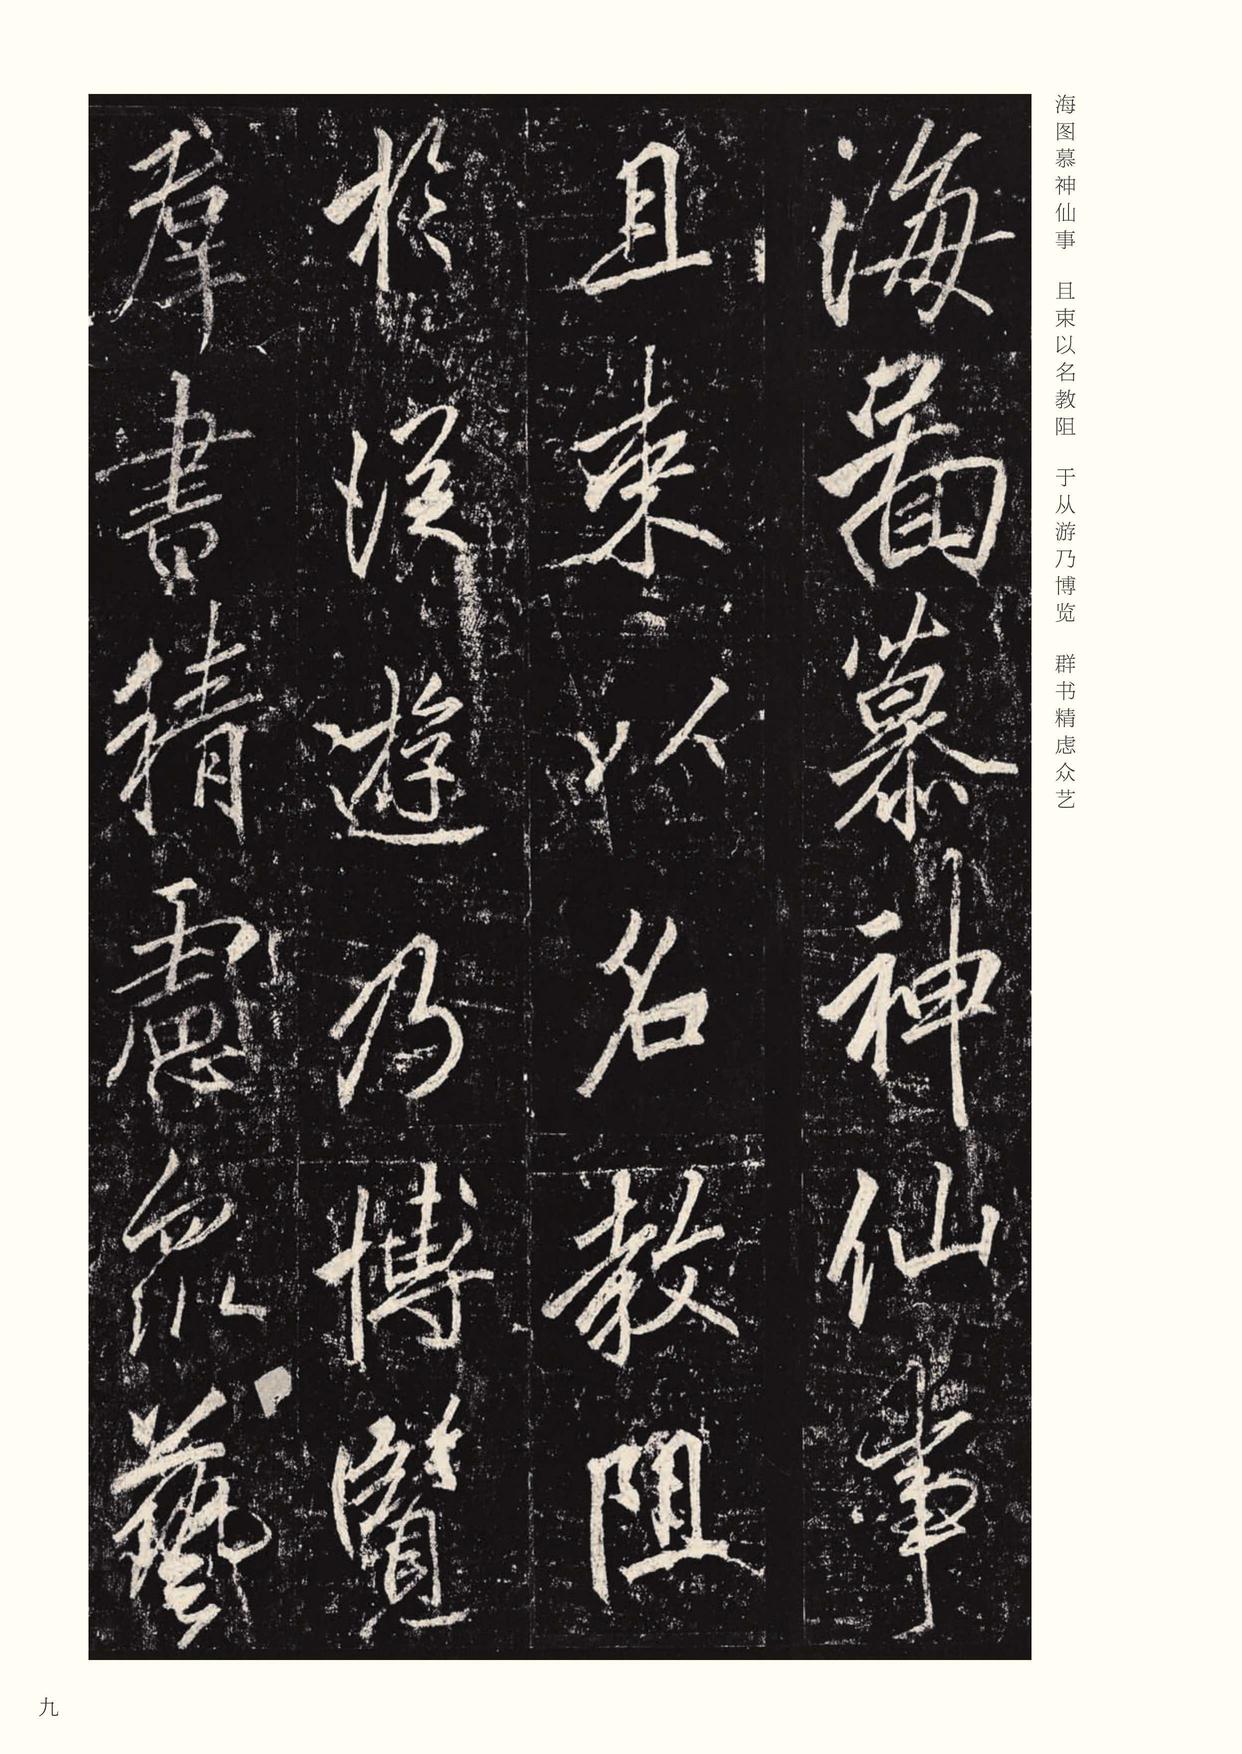 海圖慕神仙事
且束以名教阻
於從遊乃博覽
群書精慮眾藝
海图慕神仙事　且束以名教阻　于从游乃博览　群书精虑众艺
九